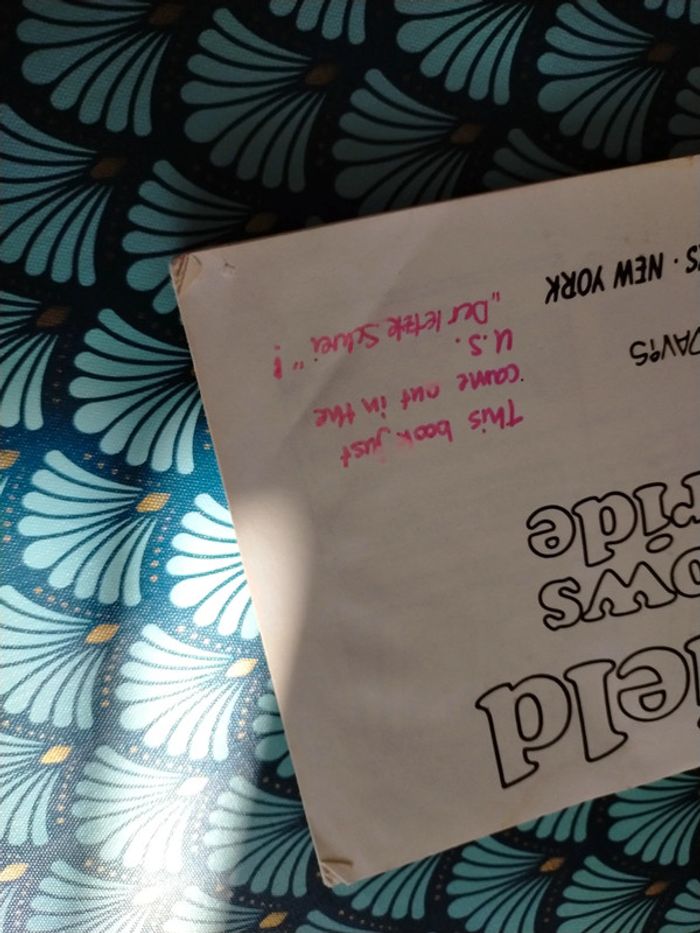 eld
ows
ride
This book just
came out in the
U.S.
„Der letzte Schrei“!
DAVIS
S · NEW YORK